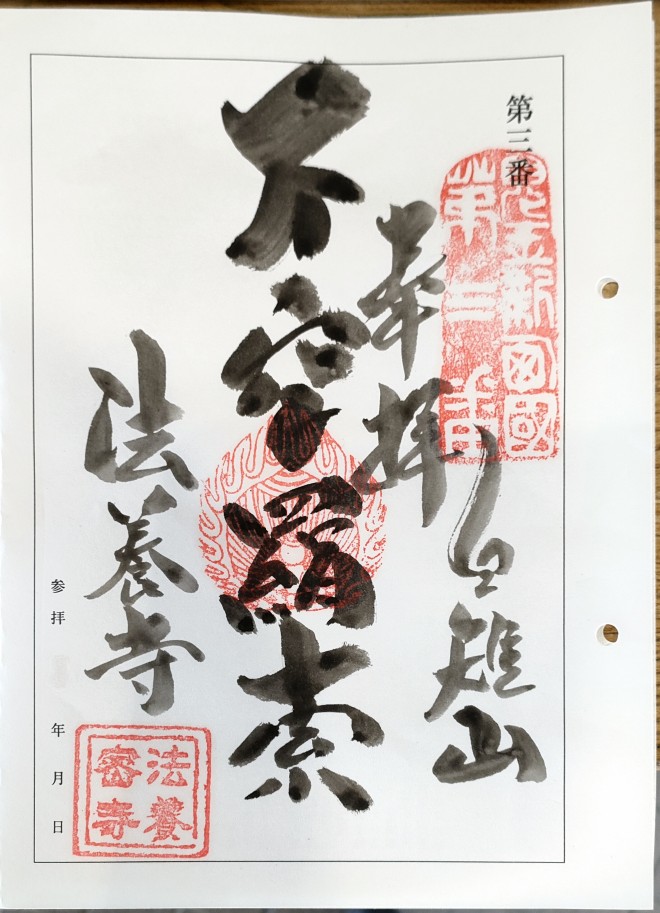 第三番
兒玉新四國
第三番
奉拝
白雉山
不空羂索
法養寺
法養
密寺
参拝 年 月 日